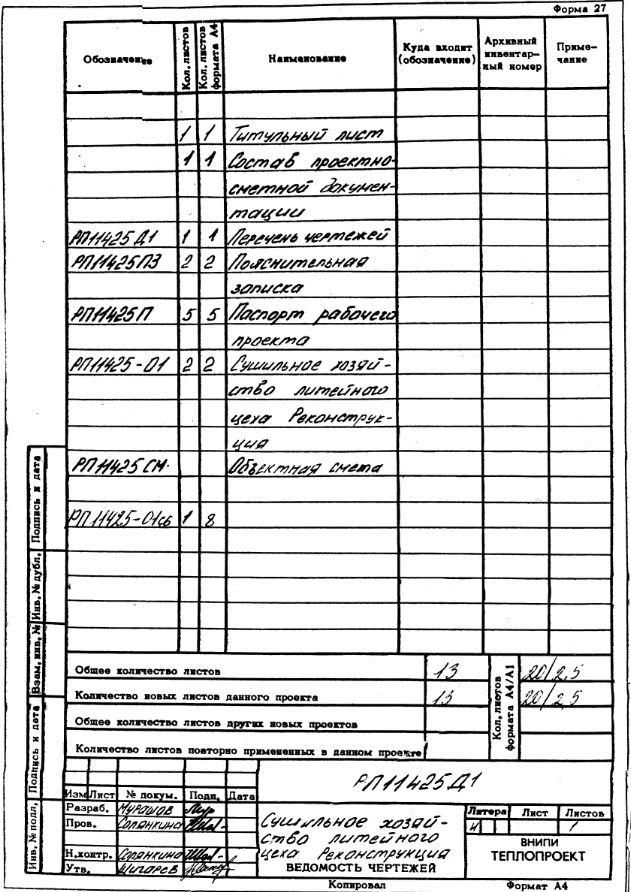 Форма 27
Обозначение Кол. листов Кол. листов формата А4 Наименование Куда входит (обозначение) Архивный инвентарный номер Примечание
1 1 Титульный лист
1 1 Состав проектно-
сметной докумен-
тации
РП11425Д1 1 1 Перечень чертежей
РП11425ПЗ 2 2 Пояснительная
записка
РП11425П 5 5 Паспорт рабочего
проекта
РП11425-01 2 2 Сушильное хозяй-
ство литейного
цеха Реконструк-
ция
РП11425СМ Объектная смета
РП11425-01сб 1 8
Общее количество листов 13 20/2,5
Количество новых листов данного проекта 13 20/2,5
Общее количество листов других новых проектов
Количество листов повторно примененных в данном проекте
Кол. листов формата А4/А1
РП11425Д1
Изм Лист № докум. Подп. Дата
Разраб. Мурашов
Пров. Солянкина
Н.контр. Солянкина
Утв. Шигарев
Сушильное хозяй-
ство литейного
цеха Реконструкция
ВЕДОМОСТЬ ЧЕРТЕЖЕЙ
Литера Лист Листов
1
ВНИПИ
ТЕПЛОПРОЕКТ
Копировал Формат А4
Инв. № подл. Подпись и дата Взам. инв. № Инв. № дубл. Подпись и дата